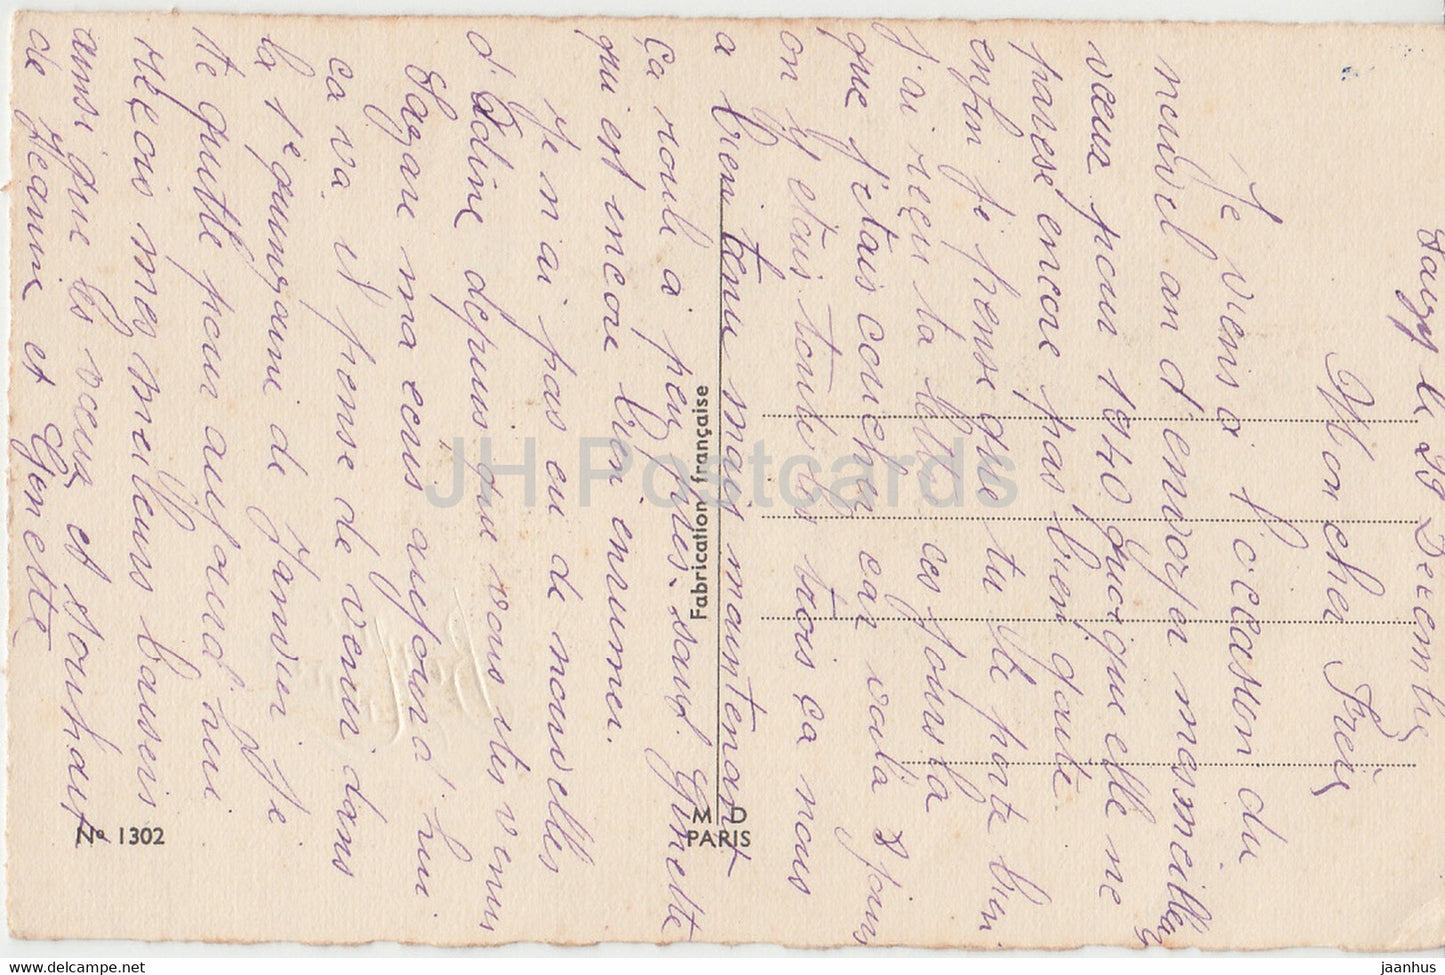 le 29 Decembre
Mon cher Frère
Je viens a l'occasson du
nouvel an d'envoyer mes meilleurs
vœux pour 1940 quoi que elle ne
parese encore pas bien gaite.
enfin je pense que tu te porte bien
j'ai reçu ta lettre ces jours la
que j'etais coucher car voila 8 jours
on y etais toutes les trois ça nous
a bien tenu mais maintenant
ça roule a peu pres. sauf Ginette
qui est encore bien enrumer.
Je n'ai pas eu de nouvelles
d'Odine depuis que vous etis venus
Lazare ma ecris aujourd'hui
ca va il pense de venir dans
la 1e quinzaine de Janvier Je
te quitte pour aujourd'hui
reçois mes meilleurs baisers
ainsi que les vœux et souhait
de Jeanne et Ginette
Fabrication française
M D
PARIS
No 1302
JH Postcards
hippostcard.com
jaanhus